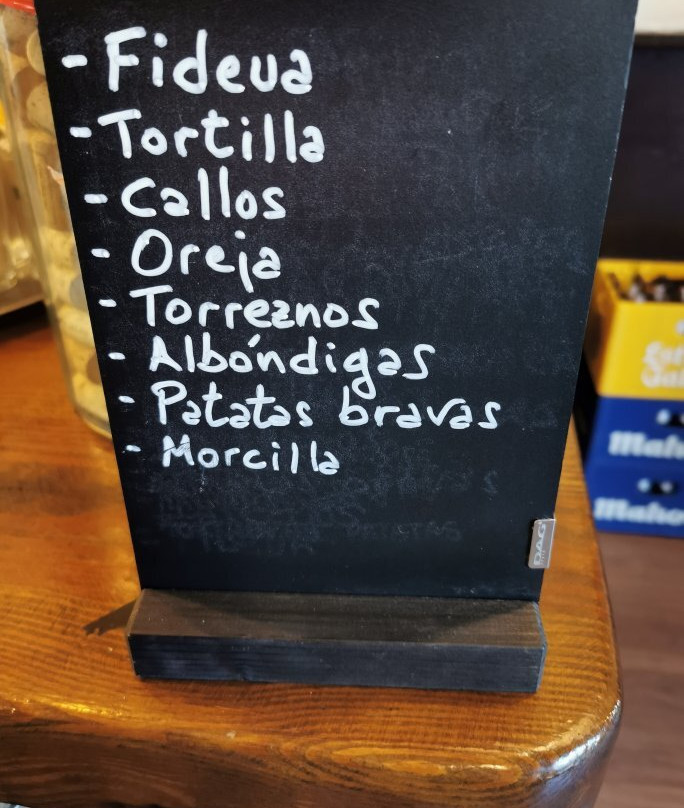 - Fideua
- Tortilla
- Callos
- Oreja
- Torreznos
- Albóndigas
- Patatas bravas
- Morcilla
DAG